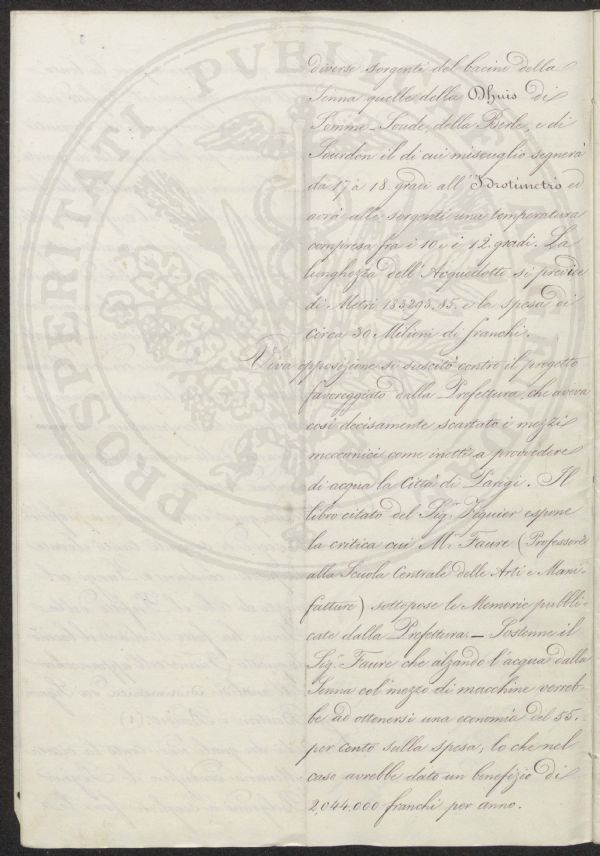 diverse sorgenti del bacino della
Senna quelle della Dhuis di
Somme-Soude, della Berle, e di
Sourdon il di cui miscuglio segnerà
da 17 a 18. gradi all'Idrotimetro ed
avrà alle sorgenti una temperatura
compresa fra i 10 e i 12 gradi. La
lunghezza dell'Acquedotto si prevede
di Metri 183,293.85. e la spesa di
circa 30 Milioni di franchi.
Viva opposizione si suscitò contro il progetto
favoreggiato dalla Prefettura che aveva
così decisamente scartato i mezzi
meccanici come inetti a provvedere
di acqua la Città di Parigi. Il
libro citato del Sigr. Figuier espone
la critica cui Mr. Faure (Professore
alla Scuola Centrale delle Arti e Mani-
fatture) sottopose le Memorie pubbli-
cate dalla Prefettura. — Sostenne il
Sigr. Faure che alzando l'acqua dalla
Senna col mezzo di macchine verreb-
be ad ottenersi una economia del 55.
per cento sulla spesa, lo che nel
caso avrebbe dato un benefizio di
2,044.000 franchi per anno.
PROSPERITATI PVBLI